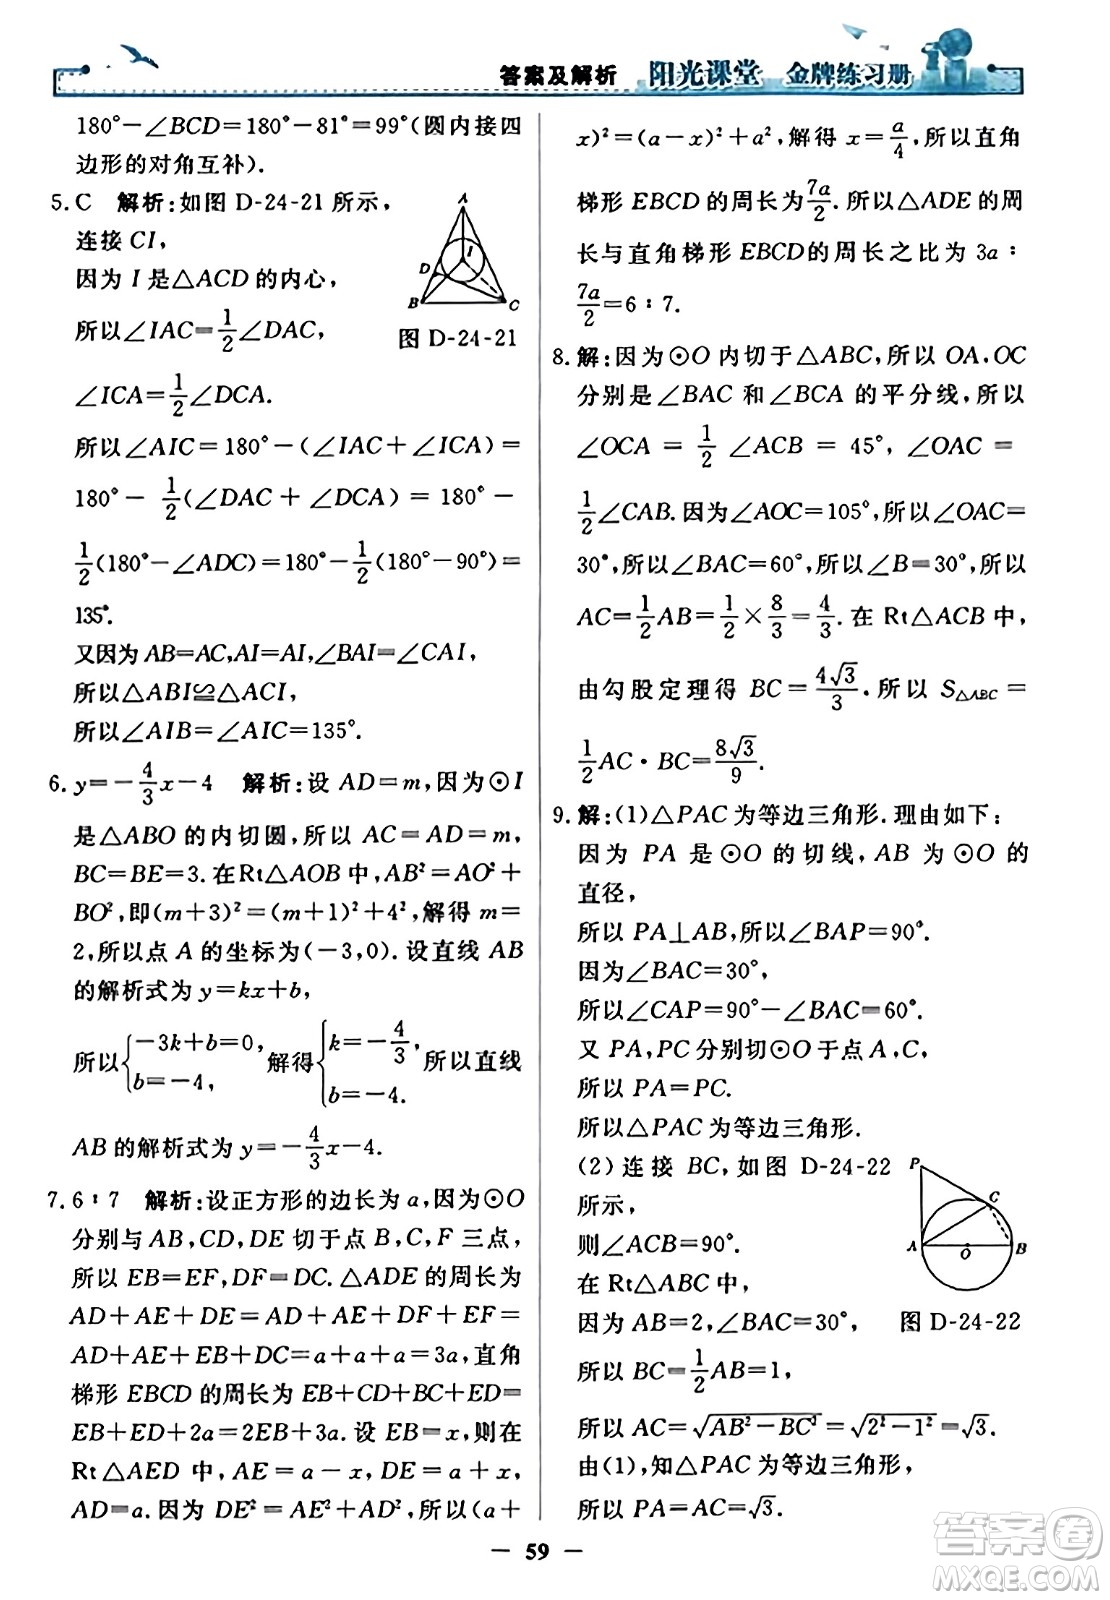 答案及解析 阳光课堂 金牌练习册
180°－∠BCD＝180°－81°＝99°(圆内接四
边形的对角互补).
5.C 解析:如图 D-24-21 所示,
连接 CI,
因为 I 是△ACD 的内心,
所以∠IAC＝1/2∠DAC,
A
D
I
B
C
图 D-24-21
∠ICA＝1/2∠DCA.
所以∠AIC＝180°－(∠IAC＋∠ICA)＝
180°－1/2(∠DAC＋∠DCA)＝180°－
1/2(180°－∠ADC)＝180°－1/2(180°－90°)＝
135°.
又因为 AB＝AC,AI＝AI,∠BAI＝∠CAI,
所以△ABI≌△ACI,
所以∠AIB＝∠AIC＝135°.
6.y＝－4/3x－4 解析:设 AD＝m,因为⊙I
是△ABO 的内切圆,所以 AC＝AD＝m,
BC＝BE＝3.在Rt△AOB 中,AB²＝AO²＋
BO²,即(m＋3)²＝(m＋1)²＋4²,解得 m＝
2,所以点 A 的坐标为(－3,0).设直线 AB
的解析式为 y＝kx＋b,
所以{－3k＋b＝0, b＝－4, 解得{k＝－4/3, b＝－4. 所以直线
AB 的解析式为 y＝－4/3x－4.
7.6∶7 解析:设正方形的边长为 a,因为⊙O
分别与 AB,CD,DE 切于点 B,C,F 三点,
所以 EB＝EF,DF＝DC.△ADE 的周长为
AD＋AE＋DE＝AD＋AE＋DF＋EF＝
AD＋AE＋EB＋DC＝a＋a＋a＝3a,直角
梯形 EBCD 的周长为 EB＋CD＋BC＋ED＝
EB＋ED＋2a＝2EB＋3a.设 EB＝x,则在
Rt△AED 中,AE＝a－x,DE＝a＋x,
AD＝a.因为 DE²＝AE²＋AD²,所以(a＋
x)²＝(a－x)²＋a²,解得 x＝a/4,所以直角
梯形 EBCD 的周长为7a/2.所以△ADE 的周
长与直角梯形 EBCD的周长之比为 3a∶
7a/2＝6∶7.
8.解:因为⊙O 内切于△ABC,所以 OA,OC
分别是∠BAC 和∠BCA 的平分线,所以
∠OCA＝1/2∠ACB＝45°,∠OAC＝
1/2∠CAB.因为∠AOC＝105°,所以∠OAC＝
30°,所以∠BAC＝60°,所以∠B＝30°,所以
AC＝1/2AB＝1/2×8/3＝4/3.在 Rt△ACB 中,
由勾股定理得 BC＝4√3/3.所以 S△ABC＝
1/2AC·BC＝8√3/9.
9.解:(1)△PAC 为等边三角形.理由如下:
因为 PA 是⊙O 的切线,AB 为⊙O 的
直径,
所以 PA⊥AB,所以∠BAP＝90°.
因为∠BAC＝30°,
所以∠CAP＝90°－∠BAC＝60°.
又 PA,PC 分别切⊙O 于点 A,C,
所以 PA＝PC.
所以△PAC 为等边三角形.
(2)连接 BC,如图 D-24-22
所示,
则∠ACB＝90°.
在 Rt△ABC 中,
因为 AB＝2,∠BAC＝30°,
P
C
A
O
B
图 D-24-22
所以 BC＝1/2AB＝1,
所以 AC＝√(AB²－BC²)＝√(2²－1²)＝√3.
由(1),知△PAC 为等边三角形,
所以 PA＝AC＝√3.
— 59 —
答案卷
MXQE.COM